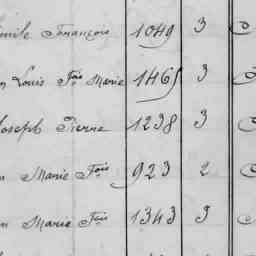 François 1049 3
Louis Fois Marie 1465 3
Joseph Pierre 1238 3
Marie Fois 923 2
Marie Fois 1343 3